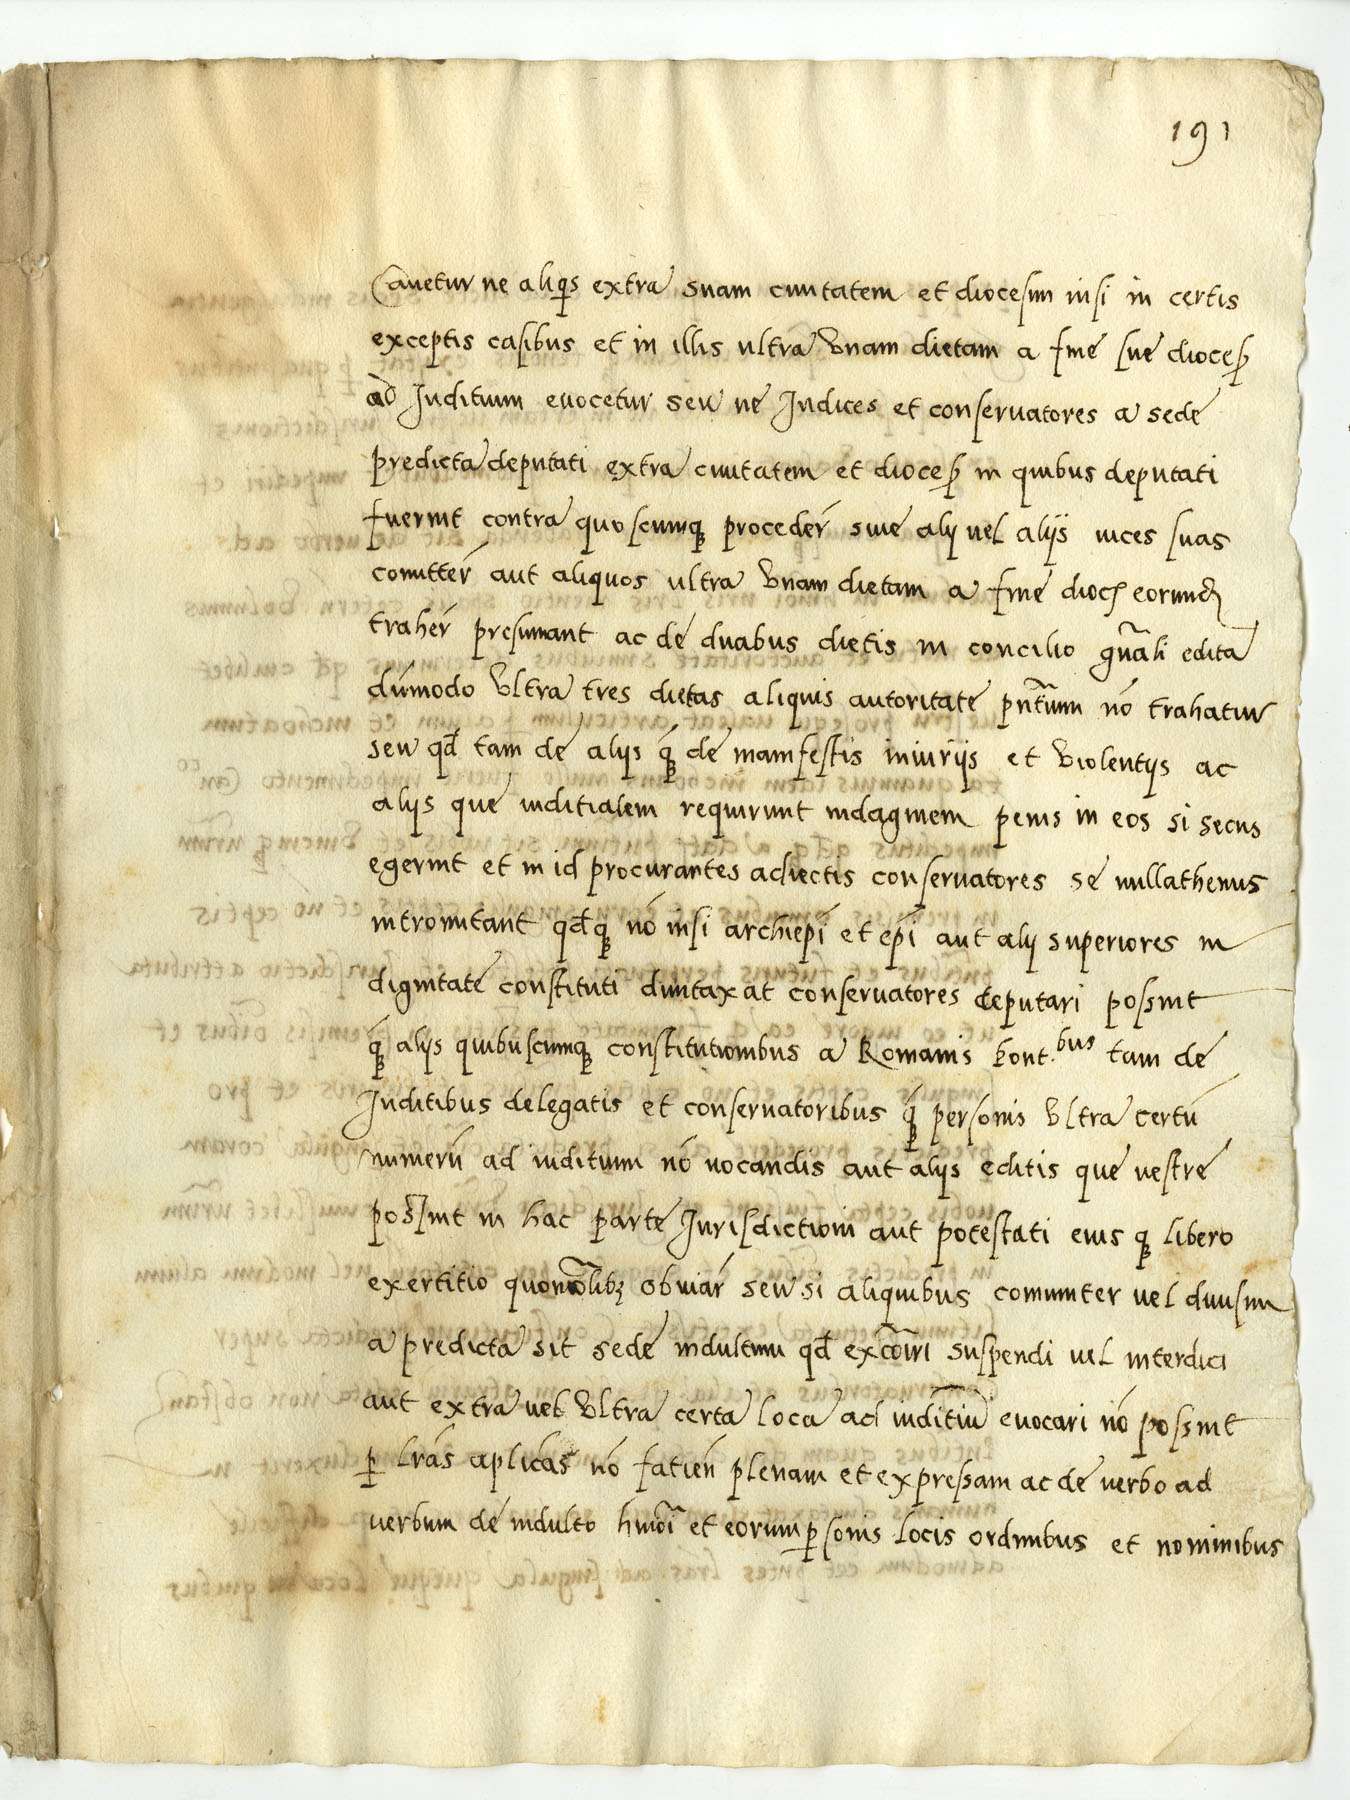 191
Cavetur ne aliqs extra suam ciuitatem et diocesim nisi in certis
exceptis casibus et in illis ultra vnam dietam a fine sue dioces
ad Juditium euocetur seu ne Judices et conseruatores a sede
predicta deputati extra ciuitatem et dioces in quibus deputati
fuerint contra quoscumq procedere siue alij uel aliis uices suas
comittere aut aliquos ultra vnam dietam a fine dioc eorund
traher presumant ac de duabus dietis in concilio gnali edita
dumodo vltra tres dietas aliquis autoritate pntium no trahatur
seu qd tam de alijs q de manifestis iniurijs et violentijs ac
alijs que iuditialem requirunt indaginem penis in eos si secus
egerint et in id procurantes adiectis conseruatores se nullathenus
intromitant qdq no nisi archiepi et epi aut alij superiores in
dignitate constituti duntaxat conseruatores deputari possint
q alijs quibuscumq constitutionibus a Romanis pont.bus tam de
Juditibus delegatis et conseruatoribus q personis vltra certu
numeru ad iuditium no uocandis aut alijs editis que uestre
possint in hac parte Jurisdictioni aut potestati eius q libero
exertitio quomolibz obuiar seu si aliquibus comuniter uel diuisim
a predicta sit sede indultum qd excoiri suspendi uel interdici
aut extra uel vltra certa loca ad iuditiu euocari no possint
p lras aplicas no fatien plenam et expressam ac de verbo ad
uerbum de indulto hmoi et eorum psonis locis ordinibus et nominibus